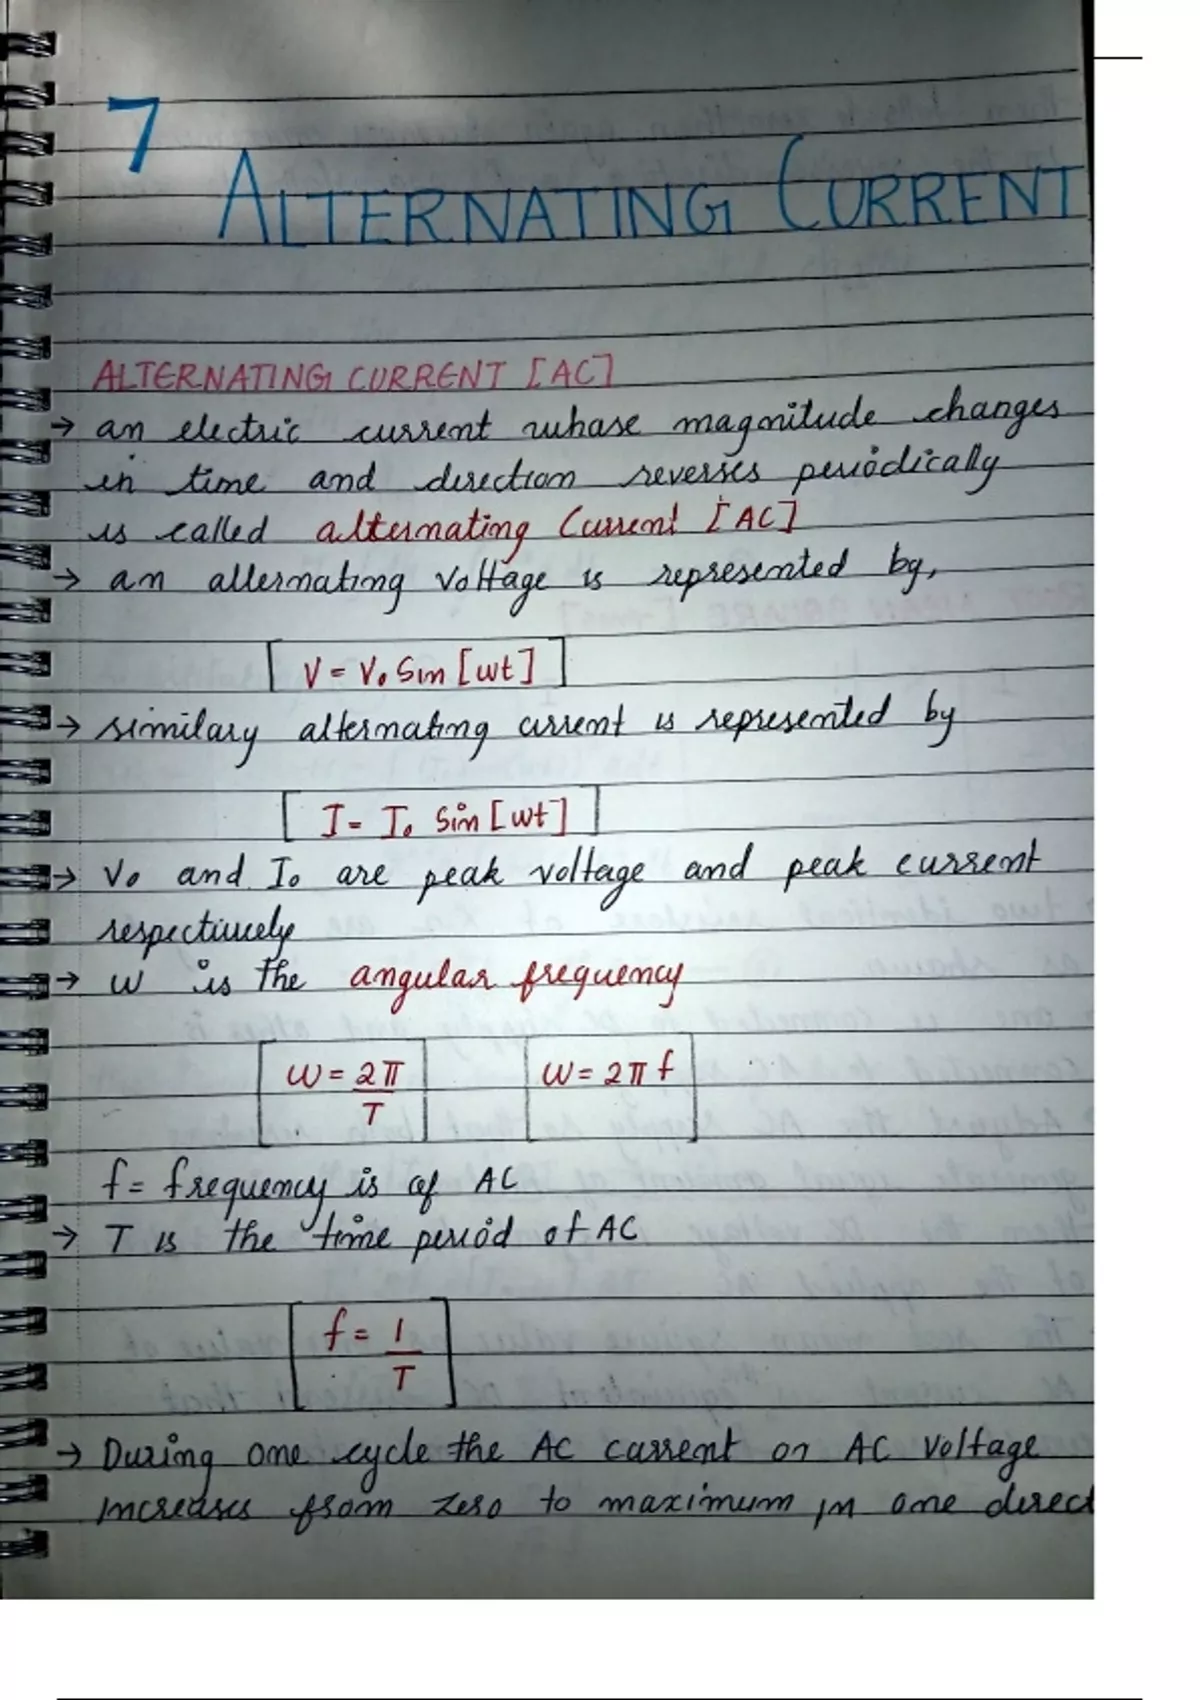 7
ALTERNATING CURRENT
ALTERNATING CURRENT [AC]
→ an electric current whase magnitude changes
in time and direction reverses periodically
is called alternating Current [AC]
→ an alternating voltage is represented by,
V = V₀ Sin [wt]
→ similary alternating current is represented by
I = I₀ Sin [wt]
→ V₀ and I₀ are peak voltage and peak current
respectively
→ w is the angular frequency
ω = 2π/T ω = 2π f
f = frequency is of AC
→ T is the time period of AC
f = 1/T
→ During one cycle the AC current or AC voltage
increases from zero to maximum in one direct